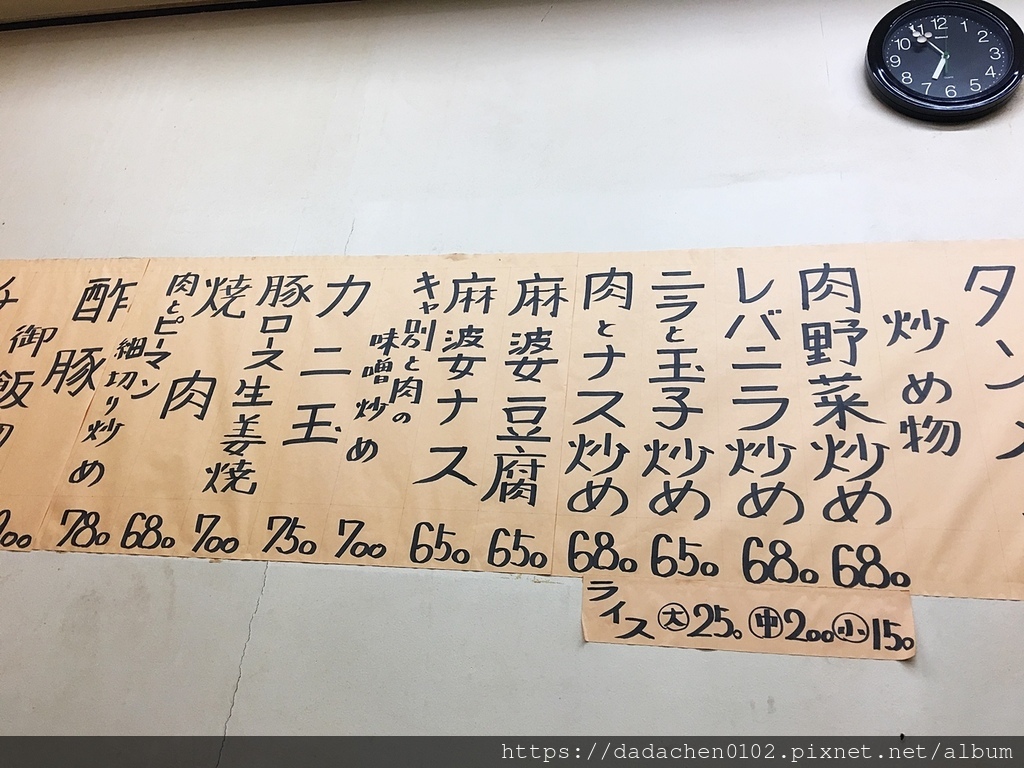 タンメン
炒め物
肉野菜炒め 680
レバニラ炒め 680
ニラと玉子炒め 650
肉とナス炒め 680
麻婆豆腐 650
麻婆ナス 650
キャ別と肉の
味噌炒め
カニ玉 700
豚ロース生姜焼 750
焼肉 700
肉とピーマン
細切り炒め 680
酢豚 780
御飯
ライス 大 250 中 200 小 150
12 1 2 3 4 5 6 7 8 9 10 11
https://dadachen0102.pixnet.net/album